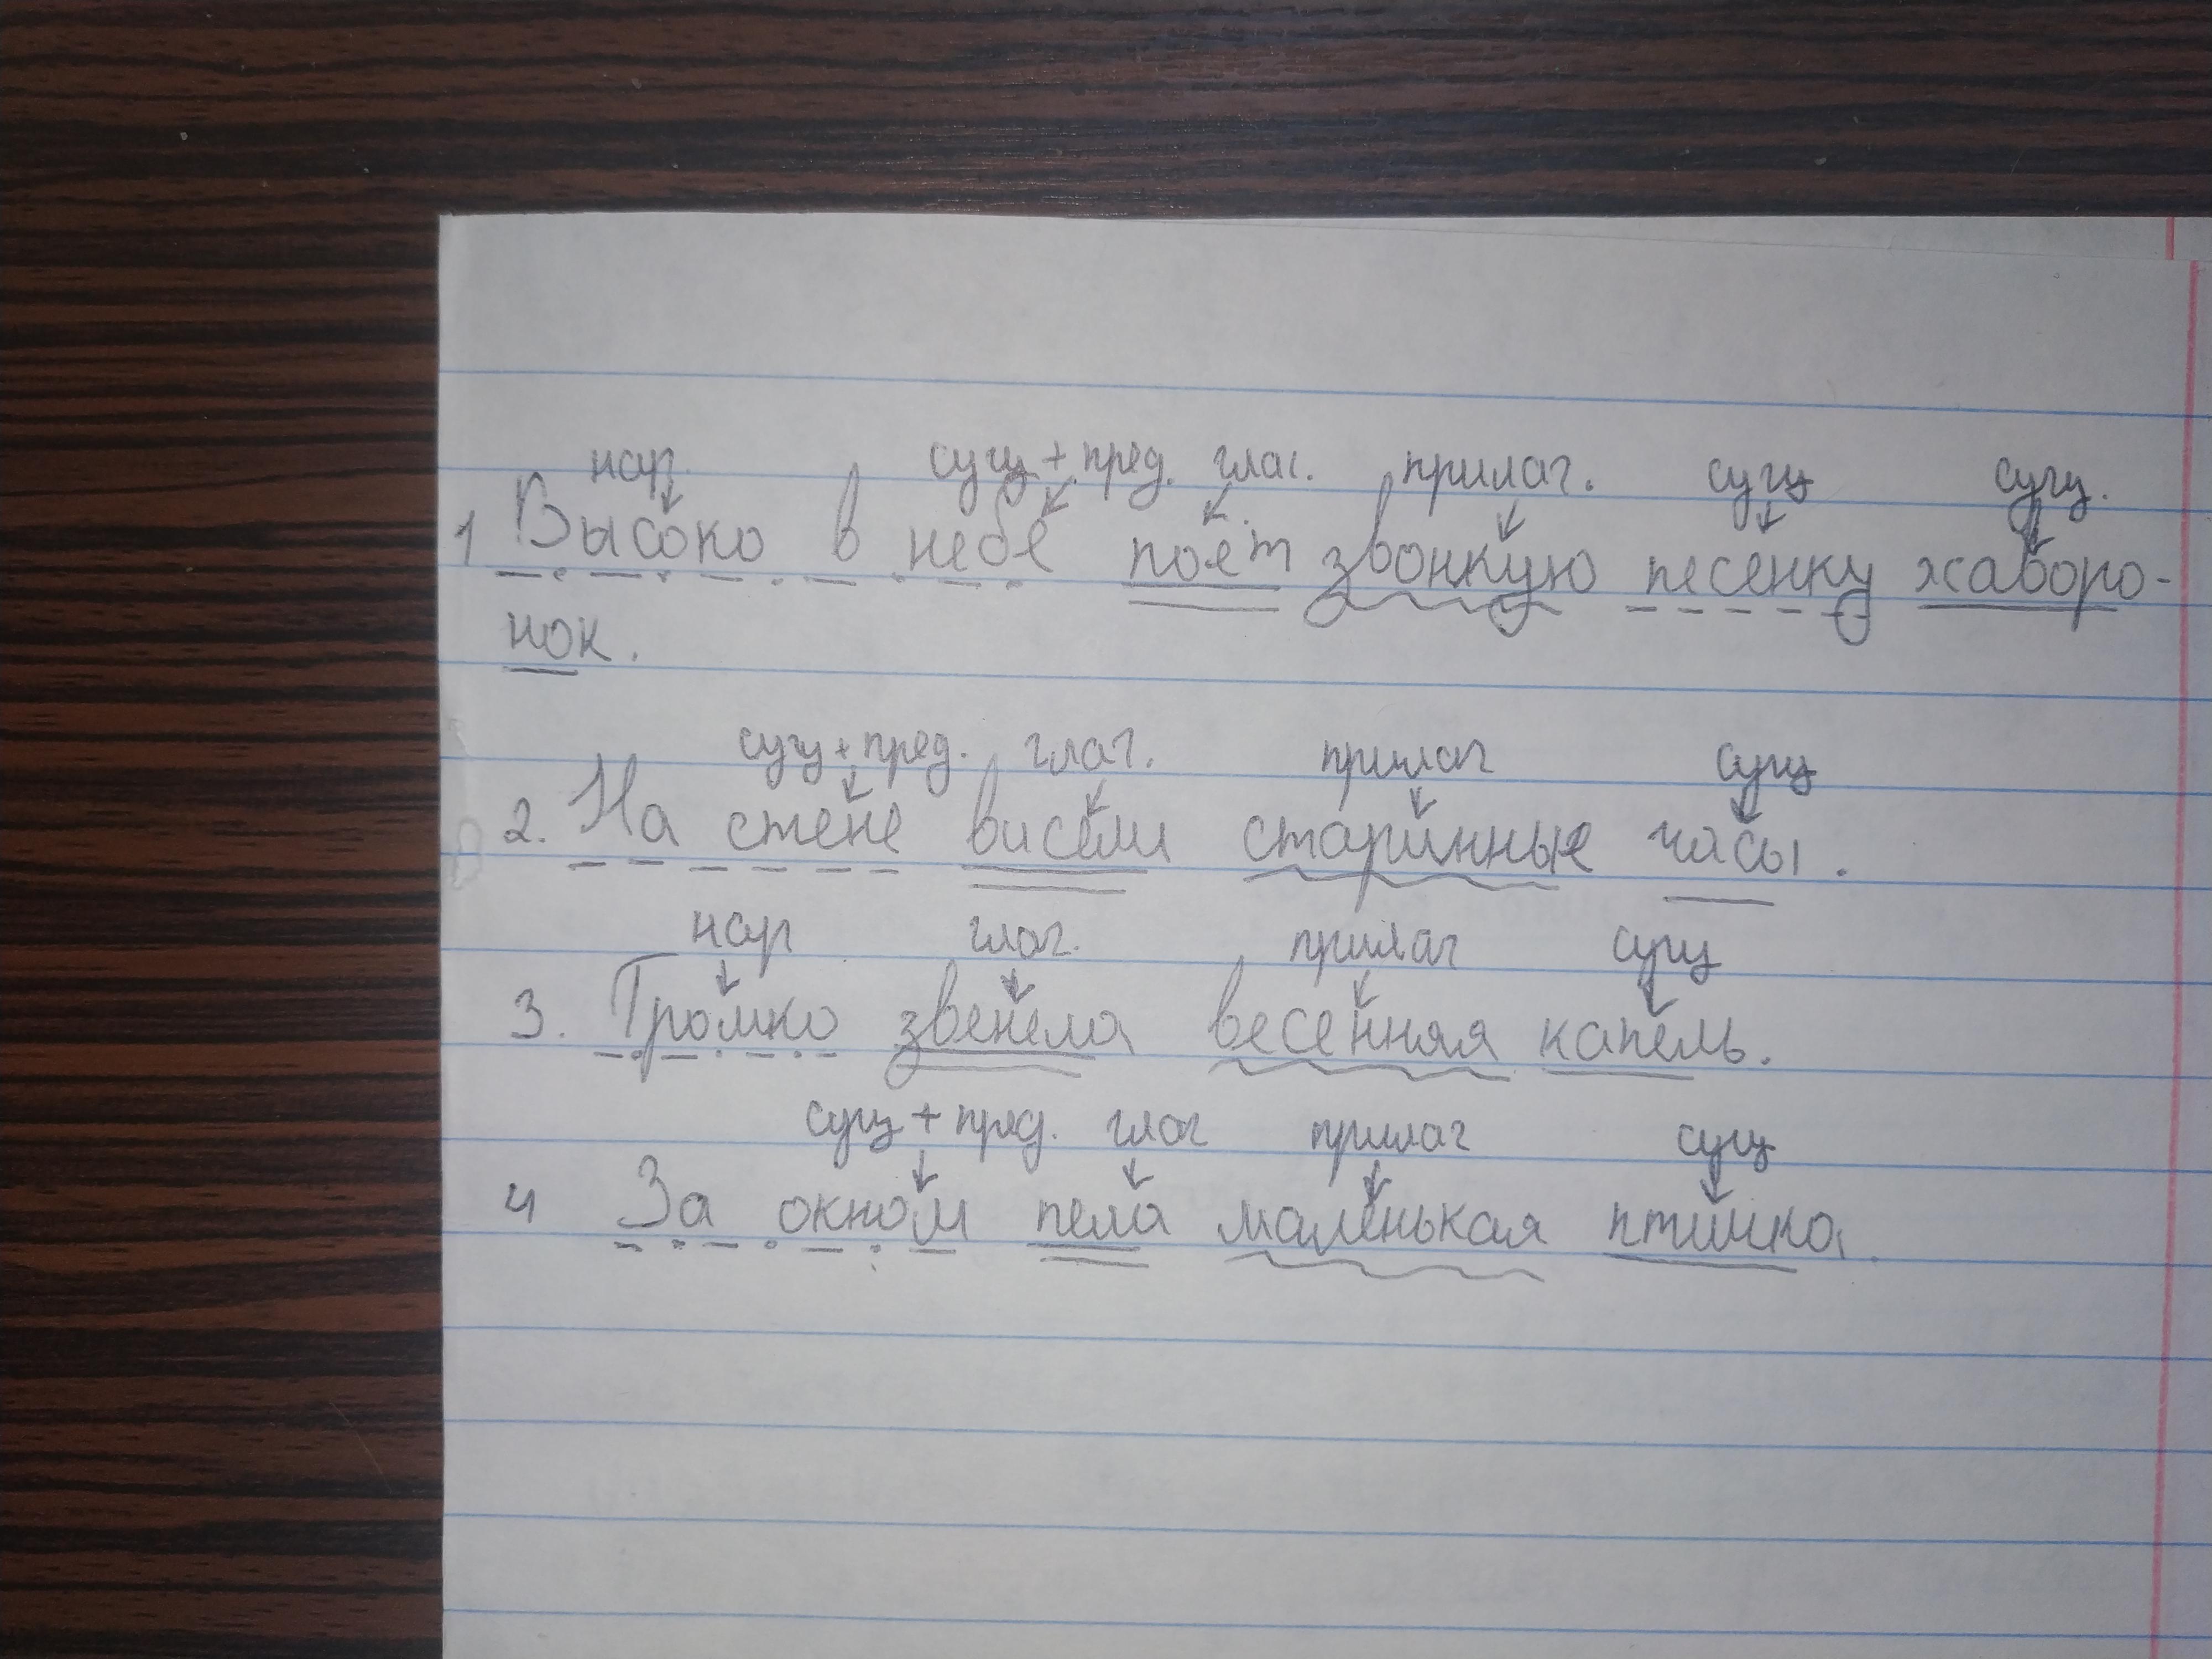 нар. сущ + пред. глаг. прилаг. сущ сущ.
1 Высоко в небе поёт звонкую песенку жаворо-
нок.
сущ + пред. глаг. прилаг сущ
2. На стене висели старинные часы.
нар глаг. прилаг сущ
3. Громко звенела весенняя капель.
сущ + пред. глаг прилаг сущ
4 За окном пела маленькая птичка.